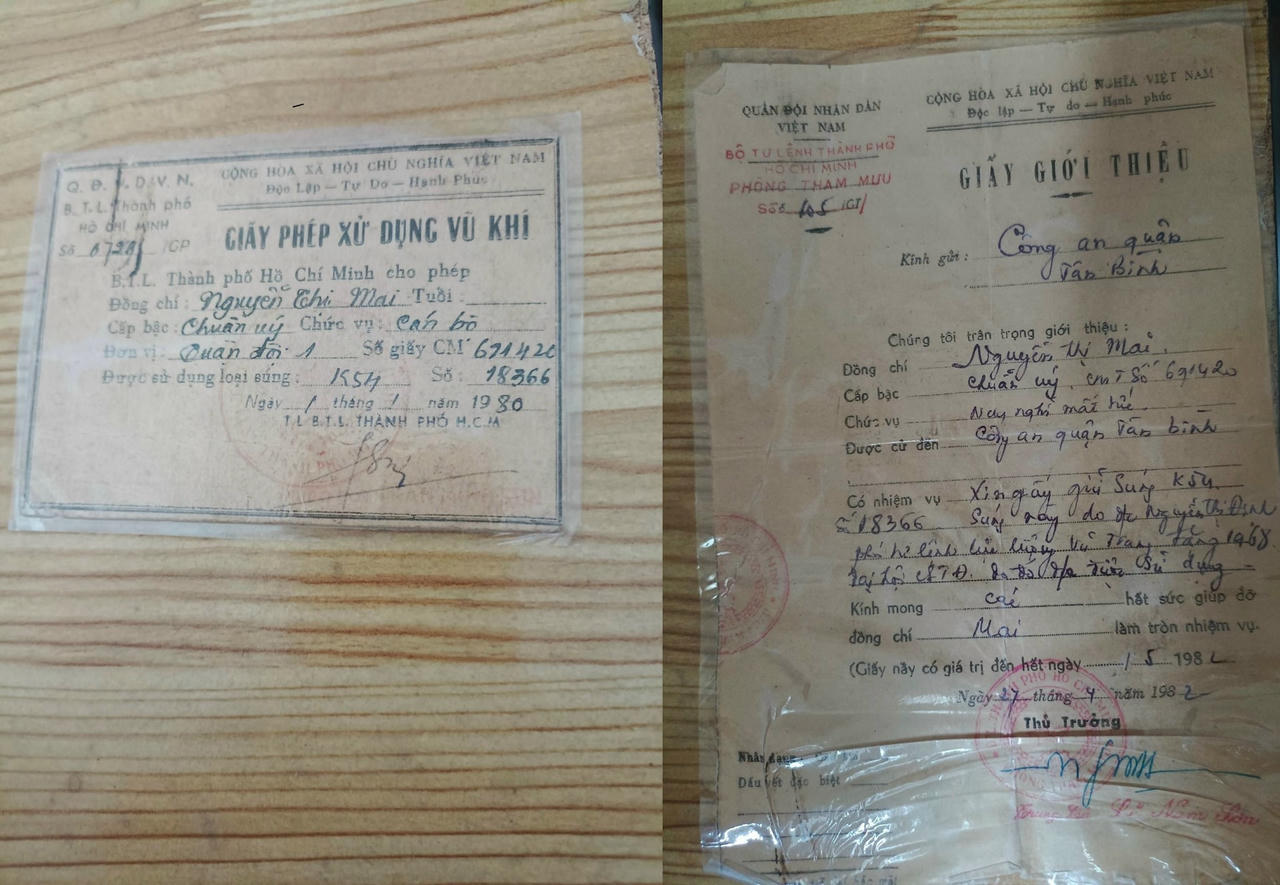 Q. Đ. N. D. V. N.
B. T. L. Thành phố
HỒ CHÍ MINH
Số 0728 /GP
CỘNG HÒA XÃ HỘI CHỦ NGHĨA VIỆT NAM
Độc Lập — Tự Do — Hạnh Phúc
GIẤY PHÉP XỬ DỤNG VŨ KHÍ
B.T.L. Thành phố Hồ Chí Minh cho phép
Đồng chí : Nguyễn Thị Mai Tuổi :
Cấp bậc : Chuẩn uý Chức vụ : cán bộ
Đơn vị : Quân đội 1 Số giấy CM 691420
Được sử dụng loại súng : K54 Số : 18366
Ngày 1 tháng 1 năm 1980
T.L B.T.L. THÀNH PHỐ H.C.M
QUÂN ĐỘI NHÂN DÂN
VIỆT NAM
BỘ TƯ LỆNH THÀNH PHỐ
HỒ CHÍ MINH
PHÒNG THAM MƯU
Số 105 /GT/
CỘNG HÒA XÃ HỘI CHỦ NGHĨA VIỆT NAM
Độc lập — Tự do — Hạnh phúc
GIẤY GIỚI THIỆU
Kính gửi : Công an quận
Tân Bình
Chúng tôi trân trọng giới thiệu :
Đồng chí Nguyễn Thị Mai.
Cấp bậc chuẩn uý. CMT Số 691420
Chức vụ Nay nghỉ mất sức
Được cử đến Công an quận Tân bình
Có nhiệm vụ Xin giấy giữ Súng K54.
Số 18366 Súng này do đ/c Nguyễn Thị Định
phó tư lệnh lực lượng Vũ Trang tặng 1968
tại hội do đó đ/c được Sử dụng
Kính mong các hết sức giúp đỡ
đồng chí Mai làm tròn nhiệm vụ.
(Giấy này có giá trị đến hết ngày 1 5 1982
Ngày 27 tháng 4 năm 1982
Thủ Trưởng
Nhân dạng:
Dấu vết đặc biệt